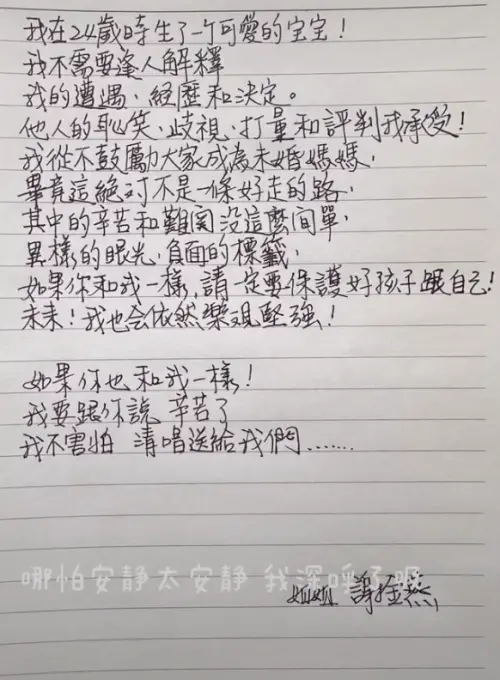 我在24歲時生了一个可愛的宝宝！
我不需要逢人解釋
我的遭遇、經歷和決定。
他人的恥笑、歧視、打量和評判我承受！
我從不鼓勵大家成為未婚媽媽，
畢竟這絕对不是一條好走的路，
其中的辛苦和難関没這麼间單，
異樣的眼光，負面的標籤，
如果你和我一樣，請一定要保護好孩子跟自己！
未來！我也会依然樂观堅強！
如果你也和我一樣！
我要跟你說 辛苦了
我不害怕 清唱送給我們……
哪怕安静太安静 我深呼了喔
姐姐 謝